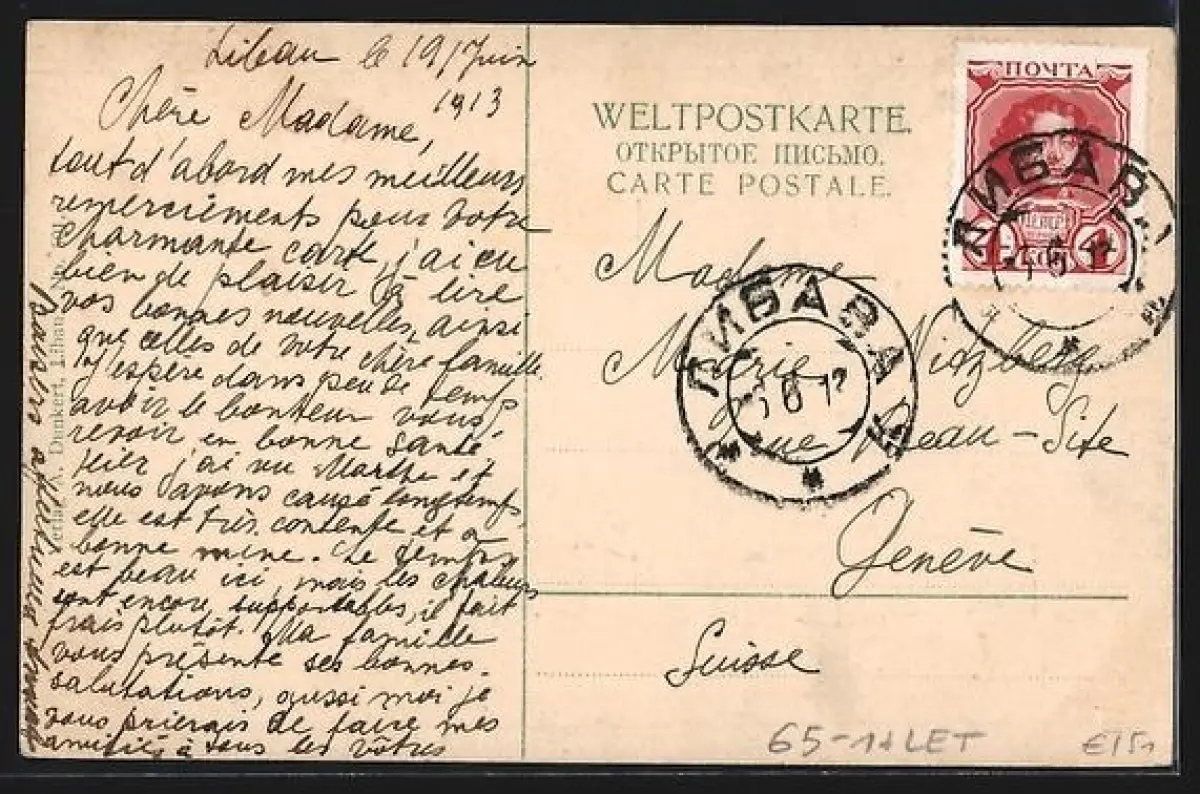 Libau le 19/Juin
1913
Chère Madame,
tout d'abord mes meilleurs
remerciements pour votre
charmante carte, j'ai eu
bien de plaisir à lire
vos bonnes nouvelles, ainsi
que celles de votre chère famille.
J'espère dans peu de temps
avoir le bonheur vous
revoir en bonne santé.
Hier j'ai vu Marthe et
nous avons causé longtemps,
elle est très contente et a
bonne mine. Le temps
est beau ici, mais les chaleurs
sont encore supportables, il fait
frais plutôt. Ma famille
vous présente ses bonnes
salutations, aussi moi je
vous prierais de faire mes
amitiés à tous les vôtres
Verlag A. Dunkert, Libau.
WELTPOSTKARTE.
ОТКРЫТОЕ ПИСЬМО.
CARTE POSTALE.
ПОЧТА
4 КОП 4
ЛИБАВА
ЛИБАВА
Madame
Marie Nitzberg
rue Beau-Site
Genève
Suisse
65-11 LET